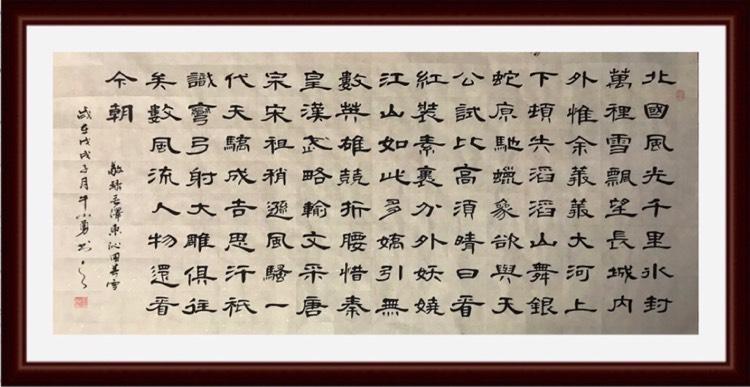 北國風光千里冰封
萬裡雪飄望長城內
外惟余義義大河上
下頓失滔滔山舞銀
蛇原馳蠟象欲與天
公試比高須晴日看
紅裝素裹分外妖嬈
江山如此多嬌引無
數英雄競折腰惜秦
皇漢武略輸文采唐
宗宋祖稍遜風騷一
代天驕成吉思汗祇
識彎弓射大雕俱往
矣數風流人物還看
今朝
敬錄毛澤東沁園春雪
歲在戊戌子月牛小勇書